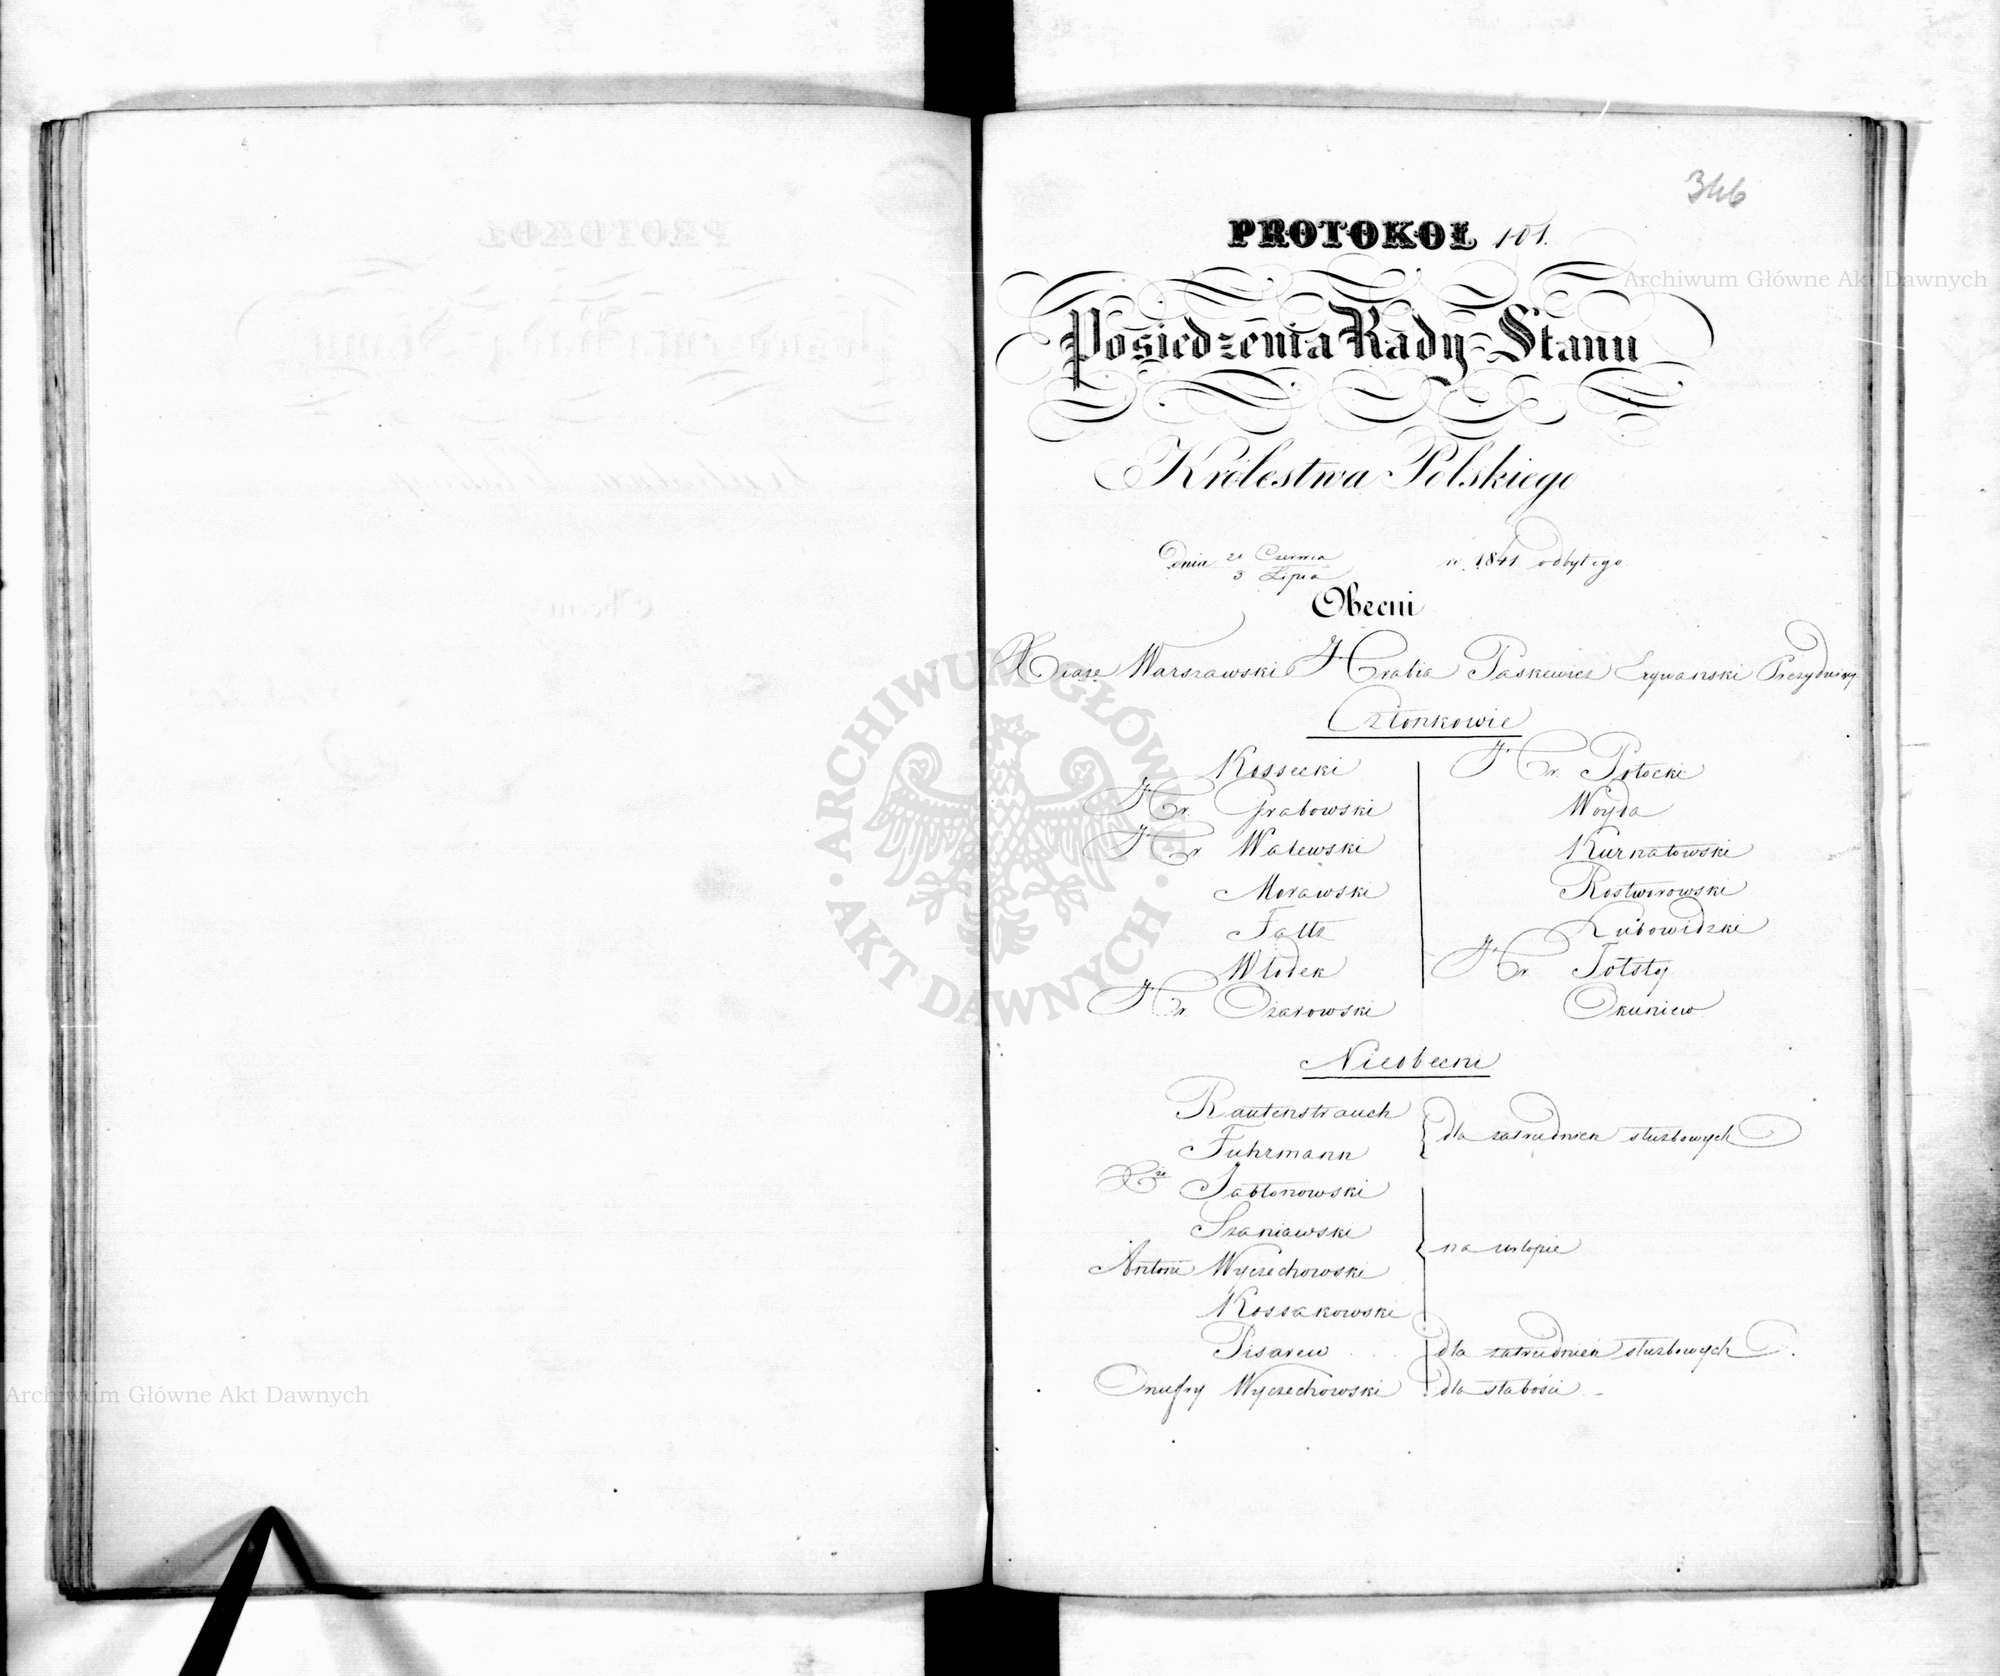 346
PROTOKOŁ 101.
Posiedzenia Rady Stanu
Królestwa Polskiego
Dnia 21 Czerwca / 3 Lipca r. 1841 odbytego
Obecni
Xiąże Warszawski Hrabia Paskewicz Erywański Prezydujący
Członkowie
Kossecki
Hr. Grabowski
Hr. Walewski
Morawski
Faltz
Włodek
Hr. Ożarowski
Hr. Potocki
Woyda
Kurnatowski
Rostworowski
Łubowidzki
Hr. Tołstoy
Okuniew
Nieobecni
Rautenstrauch
Fuhrmann
dla zatrudnień służbowych
Xże Jabłonowski
Szaniawski
Antoni Wyczechowski
Kossakowski
na urlopie
Pisarew dla zatrudnień służbowych
Onufry Wyczechowski dla słabości
Archiwum Główne Akt Dawnych
ARCHIWUM GŁÓWNE
AKT DAWNYCH
Archiwum Główne Akt Dawnych